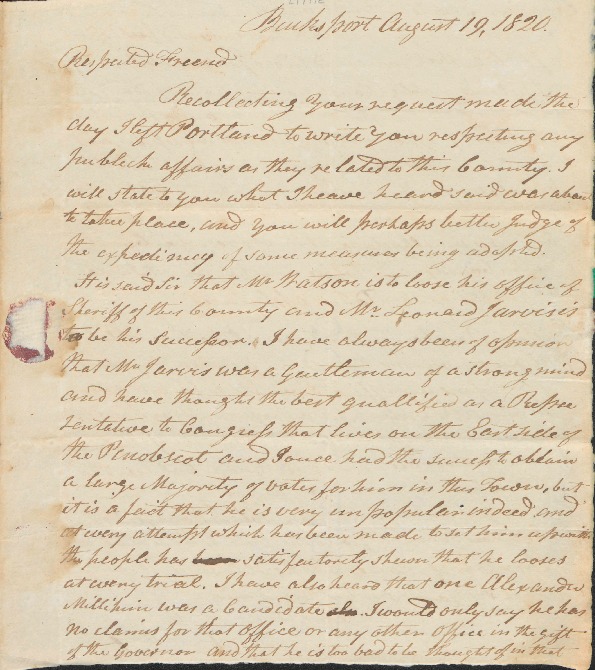 Bucksport August 19, 1820.
Respected Freend
Recollecting your request made the
day I left Portland to write you respecting any
publick affairs as they related to this County. I
will state to you what I heave heard said was about
to take place, and you will perhaps better judge of
the expediency of some measures being adopted.
It is said Sir that Mr Watson is to loose his office of
Sheriff of this County and Mr Leonard Jarvis is
to be his Successor. I have always been of opinion
that Mr Jarvis was a Gentleman of a strong mind
and have thought the best quallified as a Repre
sentative to Congress that lives on the East side of
the Penobscot and I once had the sucess to obtain
a large Majority of votes for him in this Town, but
it is a fact that he is very unpopular indeed and
at every attempt which has been made to set him up with
the people has satisfactorily shewn that he looses
at every trial. I have also heard that one Alexander
Millikin was a Candidate I would only say he has
no claims for that Office or any other Office in the gift
of the Governor and that he is too bad to be thought of in that